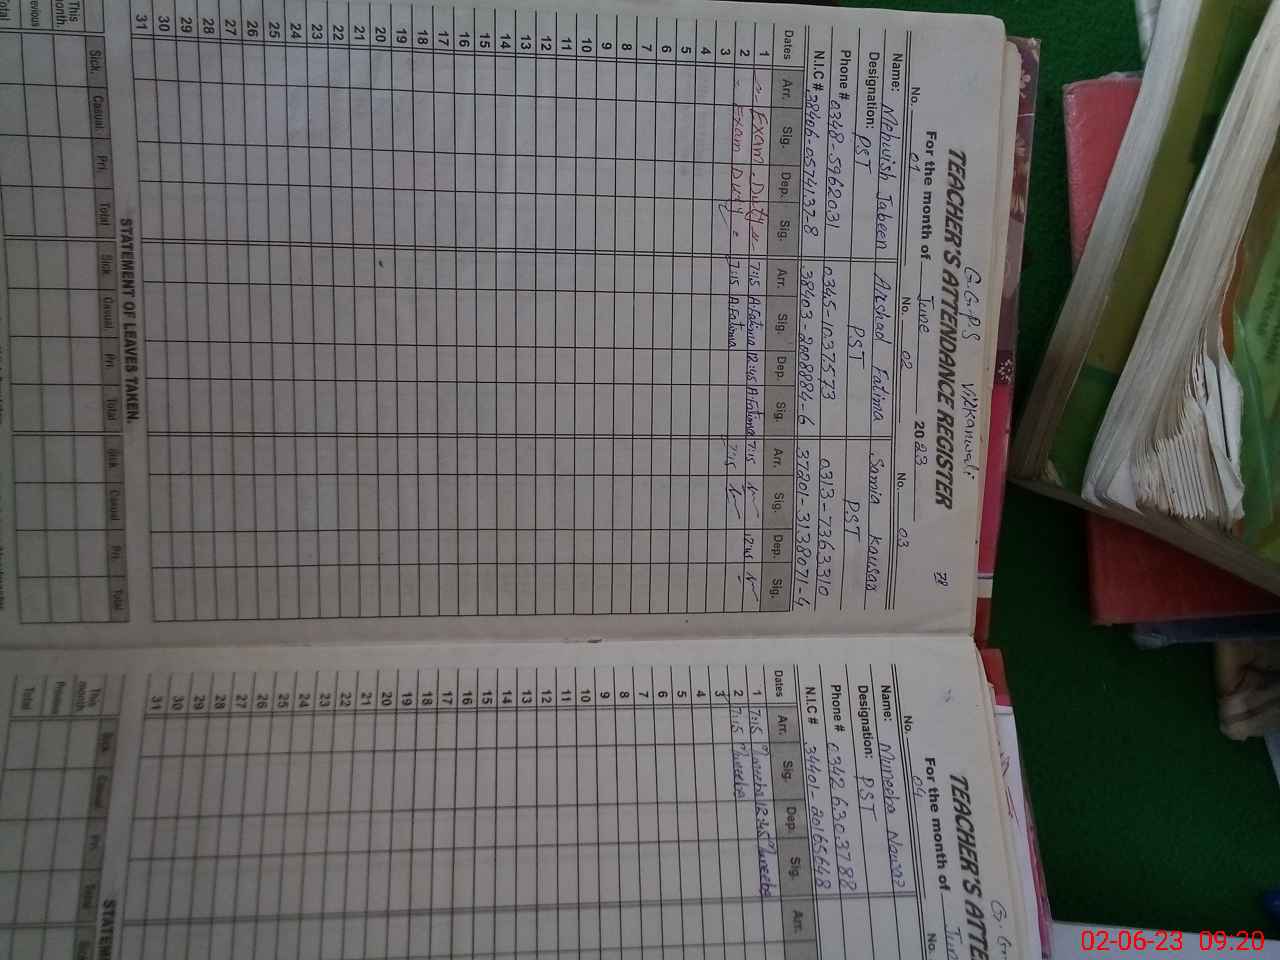 G.G.P.S Virkanwali 78
TEACHER'S ATTENDANCE REGISTER
For the month of June 2023
No. 01 No. 02 No. 03
Name: Mehwish Jabeen Arshad Fatima Samia Kausar
Designation: PST PST PST
Phone # 0348-5962031 0345-1037573 0313-7363310
N.I.C # 38406-0574137-8 38403-2008884-6 37201-3138071-4
Dates Arr. Sig. Dep. Sig. Arr. Sig. Dep. Sig. Arr. Sig. Dep. Sig.
1 Exam Duty 7:15 A.Fatima 12:45 A.Fatima 7:15 12:45
2 Exam Duty 7:15 A.Fatima 7:15
3
4
5
6
7
8
9
10
11
12
13
14
15
16
17
18
19
20
21
22
23
24
25
26
27
28
29
30
31
STATEMENT OF LEAVES TAKEN.
Sick. Casual. Pri. Total Sick Casual. Pri. Total Sick Casual Pri. Total
This month.
Total
G.G.
TEACHER'S ATTE
For the month of Jun
No. 04 No.
Name: Muneeba Nawaz
Designation: PST
Phone # 0342 6303788
N.I.C # 34401-2016564-8
Dates Arr. Sig. Dep. Sig. Arr.
1 7:15 Muneeba 12:45 Muneeba
2 7:15 Muneeba
3
4
5
6
7
8
9
10
11
12
13
14
15
16
17
18
19
20
21
22
23
24
25
26
27
28
29
30
31
STATEM
Sick Casual Pri. Total
This month.
Total
02-06-23 09:20